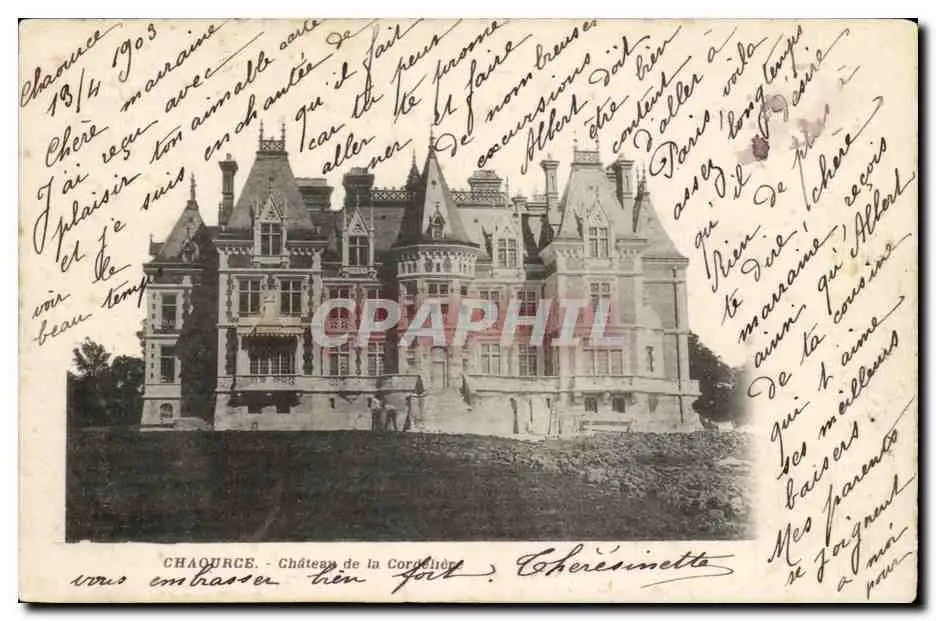 Chaource
13/4 1903
Chère marraine
J'ai reçu avec
plaisir ton aimable carte
et je suis enchantée de
voir le
beau temps
qu'il fait
car tu peux
aller te prome
ner et faire
de nombreuses
excursions.
Albert doit
être bien
content
d'aller à
Paris, voilà
assez longtemps
qu'il désire
Rien de plus à
te dire, chère
marraine, reçois
ainsi qu'Albert
de ta cousine
qui t'aime
ses meilleurs
baisers.
Mes parents
se joignent
à moi
pour
CPAPHIL
CHAOURCE. - Château de la Cordelière
vous embrasser bien fort. Thérésinette